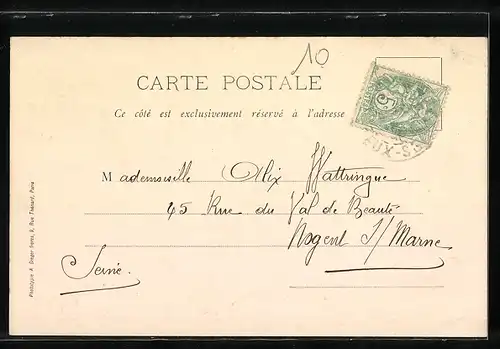 10
CARTE POSTALE
Ce côté est exclusivement réservé à l'adresse
5c
EUX-S
Mademoiselle Alix Wattringue
45 Rue du Val de Beauté
Nogent S/ Marne
Seine.
Phototypie A. Breger frères, 9, Rue Thénard, Paris